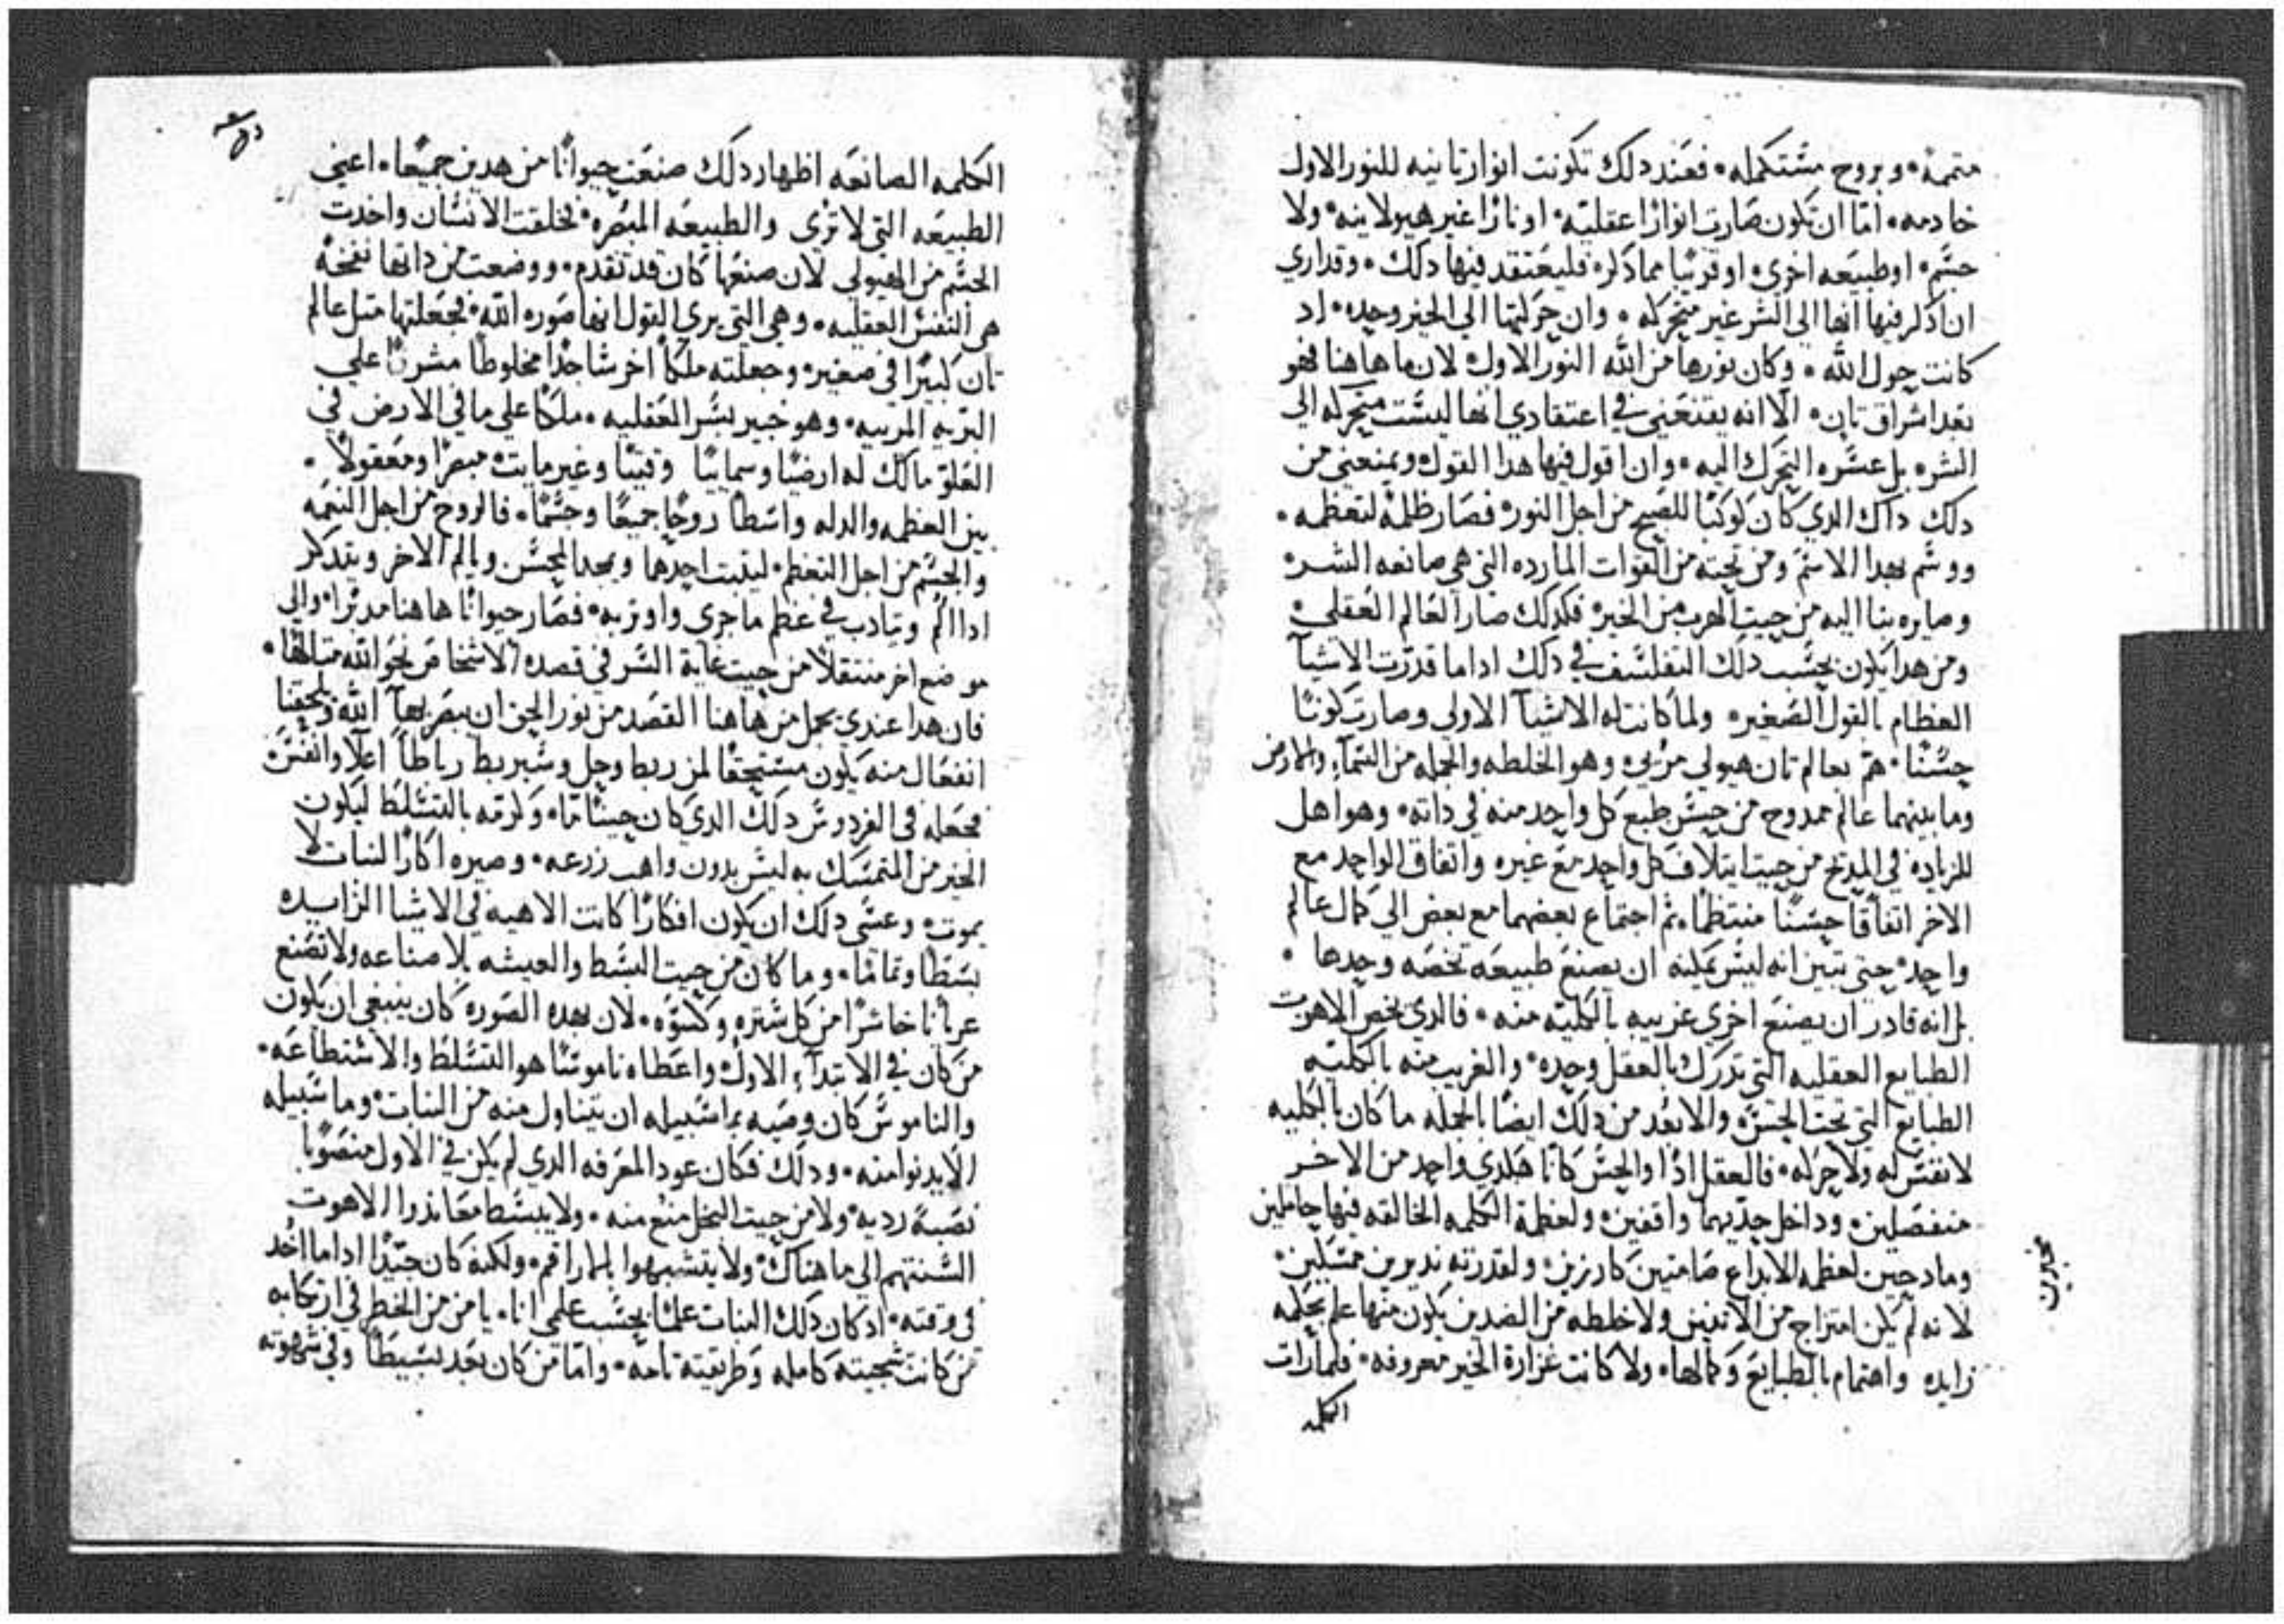 متممة٠ وبروح مشتكمله٠ فعند دلك تكونت انوار تانيه للنور الاول
خادمه٠ امّا ان تكون صارت انوارًا عقلية٠ او نارًا غير هيولانيه٠ ولا
جشم٠ او طبيعه اخرى٠ او قريبًا مما دكر٠ فليعتقد فيها دلك٠ وقد اري
ان ادكر فيها انها الى الشر غير متحركه٠ وان حركتها الي الخير وحده٠ اد
كانت حول الله٠ وكان نورها من الله النور الاول٠ لان ما هاهنا فهو
بعد اشراق تان٠ الا انه يقنعني في اعتقادي انها ليشت متحركه الى
الشر٠ بل عشره التحرك اليه٠ وان اقول فيها هدا القول٠ ويمنعني من
دلك داك الدي كان كوكبًا للصبح من اجل النور٠ فصار ظلمة لتعظمه٠
ووشم بهدا الاشم ومن تحته من القوات المارده التي هي صانعه الشر٠
وصايره بنا اليه من حيت الهرب من الخير٠ فكدلك صار العالم العقلي٠
ومن هدا يكون بحشب دلك التفلشف في دلك اداما قدرت الاشيآ
العظام بالقول الصغير٠ ولما كانت له الاشيآ الاولي وصارت كونًا
حشنًا٠ همّ بعالم تان هيولي مرئي٠ وهو الخلطه والجمله من الشمآء والارض
وما بينهما عالم ممدوح من حيش طبع كل واحد منه في داته٠ وهو اهل
للزياده في المديح من حيت ايتلاف كل واحد مع غيره واتفاق الواحد مع
الاخر اتفاقًا حشنًا منتظمًا٠ ثم اجتماع بعضهما مع بعض الي كمال عالم
واحد٠ حتى تبين انه ليش يمكنه ان يصنع طبيعه تخصه وحدها٠
بل انه قادر ان يصنع اخري غريبه بالكليه منه٠ فالدي يخص الاهوت
الطبايع العقليه التي تدرك بالعقل وحده٠ والغريب منه بالكليه
الطبايع التي تحت الحش٠ والابعد من دلك ايضًا بالجمله ما كان بالكليه
لا نفش له ولا حركه٠ فالعقل ادًا والحش كانا هكدي واحد من الاخر
منفصلين٠ وداخل حديهما واقفين٠ ولعظمة الكلمه الخالقه فيها حاملين
ومادحين لعظمه الابداع صامتين كارزين٠ ولقدرته نديرين ممشكين٠
لانه لم يكن امتزاج من الاتنين ولا خلطه من الضدين يكون منها علم بحكمه
زايده واهتمام بالطبايع وكمالها٠ ولا كانت غزارة الخير معروفه٠ فلما رات
الكلمه
الكلمه الصانعه اظهار دلك صنعت حيوانًا من هدين جميعًا٠ اعني
الطبيعه التي لا ترى والطبيعه المبصره٠ فخلقت الانشان واخدت
الجشم من الهيولي لان صنعها كان قد تقدم٠ ووضعت من داتها نفخة
هي النفش العقليه٠ وهي التي يري القول انها صوره الله٠ فجعلتها متل عالم
تان كبيرًا في صغير٠ وجعلته ملكًا اخر شاجدًا مخلوطًا مشرفًا علي
البريه المريه٠ وهو خبير بشر العقليه٠ ملكًا علي ما في الارض في
العلو مالك له ارضيًا وسماييًا وقتيًا وغير مايت٠ مبصرًا ومعقولاً٠
بين العظمه والدله واشطًا روحًا جميعًا وجشمًا٠ فالروح من اجل النعمه
والجشم من اجل التعظم٠ ليتبت احدهما ويمجد المحشن ويالم الاخر ويتدكر
ادا الم ويتادب في عظم ما جرى واوتر به٠ فصار حيوانًا هاهنا مدبرًا٠ والي
موضع اخر منتقلاً من حيت غاية الشر في قصده الاشخاص نحو الله متالهًا٠
فان هدا عندي يحمل من هاهنا القصد من نور الحق ان يبصر بهآ الله ويلحقنا
انفعال منه يكون مشتحقًا لمن ربط وحل وشيربط رباطًا اعلا وانفش٠
فجعله في الفردوش دلك الدي كان حينًا ما٠ وكرمه بالتشلط ليكون
الخير من المتمشك به ليش بدون واهب زرعه٠ وصيره اكارًا لنبات لا
يموت٠ وعشى دلك ان يكون افكارًا كانت الاهيه في الاشيا الزايده
بشطًا وتمامًا٠ وما كان من حيت البشط والعيشه بلا صناعه ولا تصنع
عريانًا خاشرًا من كل شتره وكشوه٠ لان بهده الصوره كان ينبغي ان يكون
من كان في الابتدآء الاول٠ واعطاه ناموشًا هو التشلط والاشتطاعه٠
والناموش كان وصيه بما شبيله ان يتناول منه من النبات٠ وما شبيله
الا يدنوا منه٠ ودلك فكان عود المعرفه الدي لم يكن في الاول منصوبًا
نصبة رديه٠ ولا من حيت البخل منع منه٠ ولا يبشط معاندوا الاهوت
الشنتهم الي ما هناك٠ ولا يتشبهوا بالمارا قم٠ ولكنه كان جيّدًا اداما اخد
في وقته٠ اد كان دلك النبات علمًا بحشب علمي انا٠ يامن من الخطر في ارتكابه
من كانت شجيته كامله وطريقته تامه٠ وامّا من كان بعد بشيطًا وفي شهوته